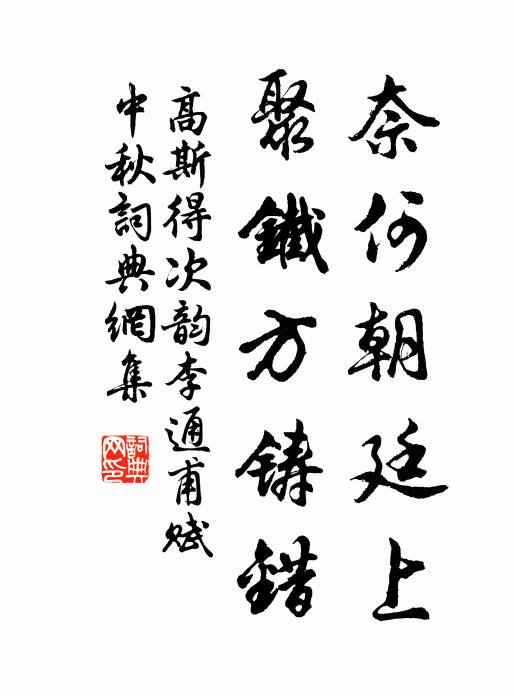 奈何朝廷上
聚鐵方铸錯
高斯得次韵李通甫赋
中秋詞典網集
詞典網印